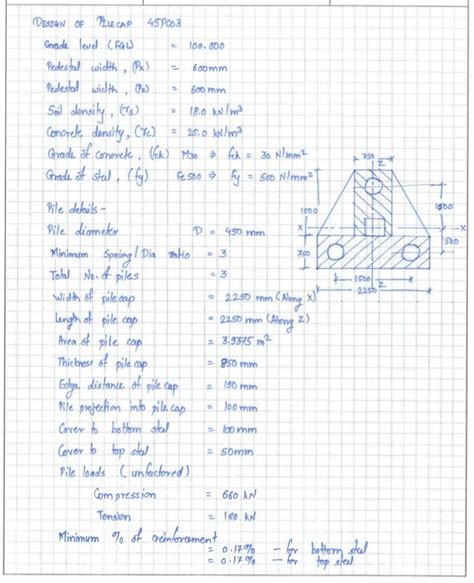 DESIGN OF PILECAP 45PC03
Grade level (FGL) = 100.000
Pedestal width, (Px) = 600mm
Pedestal width, (Pz) = 600mm
Soil density, (γs) = 18.0 kN/m³
Concrete density, (γc) = 25.0 kN/m³
Grade of concrete, (fck) M30 ⇒ fck = 30 N/mm²
Grade of steel, (fy) Fe500 ⇒ fy = 500 N/mm²
Pile details -
Pile diameter D = 450 mm
Minimum Spacing/Dia ratio = 3
Total No. of piles = 3
Width of pile cap = 2250 mm (Along X)
Length of pile cap = 2250 mm (Along Z)
Area of pile cap = 3.9375 m²
Thickness of pile cap = 850 mm
Edge distance of pile cap = 150 mm
Pile projection into pile cap = 100 mm
Cover to bottom steel = 100 mm
Cover to top steel = 50mm
Pile loads (unfactored)
Compression = 660 kN
Tension = 160 kN
Minimum % of reinforcement
= 0.17% - for bottom steel
= 0.17% - for top steel
750
Z
1500
1000
X
X
750
500
1500
Z
2250